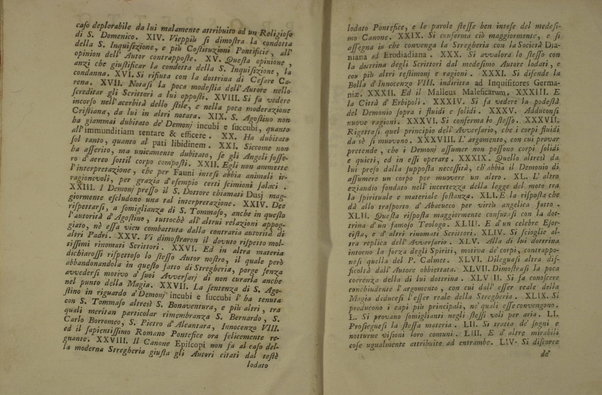 caso deplorabile da lui malamente attribuito ad un Religioso
di S. Domenico. XIV. Vieppiù si dimostra la condotta
della S. Inquisizione, e più Costituzioni Pontificie, all'
opinione dell' Autor contrapposte. XV. Questa opinione,
anzi che giustificare la condotta della S. Inquisizione, la
condanna. XVI. Si rifiuta con la dottrina di Cesare Ca-
rena. XVII. Notasi la poca modestia dell' Autore nello
screditar gli Scrittori a lui opposti. XVIII. Si fa vedere
incorso nell' acerbità dello stile, e nella poca moderazione
Cristiana, da lui in altri notata. XIX. S. Agostino non
ha giammai dubitato de' Demonj incubi e succubi, quanto
all' immunditiam tentare & efficere. XX. Ha dubitato
sol tanto, quanto al pati libidinem. XXI. Siccome non
ha asserito, ma unicamente dubitato, se gli Angeli fosse-
ro d'aereo sottil corpo composti. XXII. Egli non ammette
l'interpretazione, che per Fauni intesi abbia animali ir-
ragionevoli, per grazia d'esempio certi scimioni salaci.
XXIII. I Demonj presso il S. Dottore chiamati Dusj mag-
giormente escludono una tal interpretazione. XXIV. Dee
rispettarsi, a somiglianza di S. Tommaso, anche in questo
l'autorità d'Agostino, tuttochè ad altrui relazioni appog-
giato, nè essa vien combattuta dalla contraria autorità di
altri Padri. XXV. Vi dimostraron il dovuto rispetto mol-
tissimi rinomati Scrittori. XXVI. Ed in altra materia
dichiarossi rispettoso lo stesso Autor nostro, il quale però
abbandonandola in questo fatto di Stregheria, porge senza
avvedersi motivo a' suoi Avversarj di non curarla anche
nel punto della Magia. XXVII. La sentenza di S. Ago-
stino in riguardo a' Demonj incubi e succubi l'ha tenuta
con S. Tommaso altresì S. Bonaventura, e più altri, tra
quali meritan particolar rimembranza S. Bernardo, S.
Carlo Borromeo, S. Pietro d'Alcantara, Innocenzo VIII.
ed il sapientissimo Romano Pontefice ora felicemente re-
gnante. XXVIII. Il Canone Episcopi non fa al caso del-
la moderna Stregheria giusta gli Autori citati dal testè
lodato
lodato Pontefice, e le parole stesse ben intese del medesi-
mo Canone. XXIX. Si conferma ciò maggiormente, e si
assegna in che convenga la Stregheria con la Società Dia-
niana ed Erodiadiana. XXX. Si avvalora lo stesso con
la dottrina degli Scrittori dal medesimo Autore lodati,
e con più altri testimonj e ragioni. XXXI. Si difende la
Bolla d'Innocenzo VIII. indiritta ad Inquisitores Germa-
niæ. XXXII. Ed il Malleus Maleficarum. XXXIII. E
la Città d'Erbipoli. XXXIV. Si fa vedere la podestà
del Demonio sopra i fluidi e solidi. XXXV. Adduconsi
nuove ragioni. XXXVI. Si conferma lo stesso. XXXVII.
Rigettasi quel principio dell' Avversario, che i corpi fluidi
da sè si muovono. XXXVIII. L' argomento, con cui provar
pretende, che i Demonj assumer non possano corpi solidi
e quieti, ed in essi operare. XXXIX. Quello altresì da
lui preso dalla supposta necessità, ch' abbia il Demonio di
assumere un corpo per muovere un altro. XL. L' altro
eziandio fondato nell' incertezza della legge del moto tra
la spirituale e materiale sostanza. XLI. E la risposta che
dà allo trasporto d'Abacuco per virtù angelica fatto.
XLII. Questa risposta maggiormente confutasi con la dot-
trina d'un famoso Teologo. XLIII. E d'un celebre Esor-
cista, e d'altri rinomati Scrittori. XLIV. Si scioglie al-
tra replica dell' Avversario. XLV. Alla di lui dottrina
intorno la forza degli Spiriti, motiva de' corpi, contrappo-
nesi quella del P. Calmet. XLVI. Dileguasi altra dif-
ficoltà dall' Autore obbiettata. XLVII. Dimostrasi la poca
coerenza della di lui dottrina. XLVIII. Si fa comparire
concludente l'argomento, con cui dall' esser reale della
Magia deducesi l'esser reale della Stregheria. XLIX. Si
producono i capi più principali, ne' quali convengono.
L. Si provano somiglianti negli stessi voli per aria. LI.
Proseguesi la stessa materia. LII. Si tratta de' sogni e
notturne visioni loro comuni. LIII. E d'altre mirabili
cose ugualmente attribuite ad entrambe. LIV. Si discorre
de'